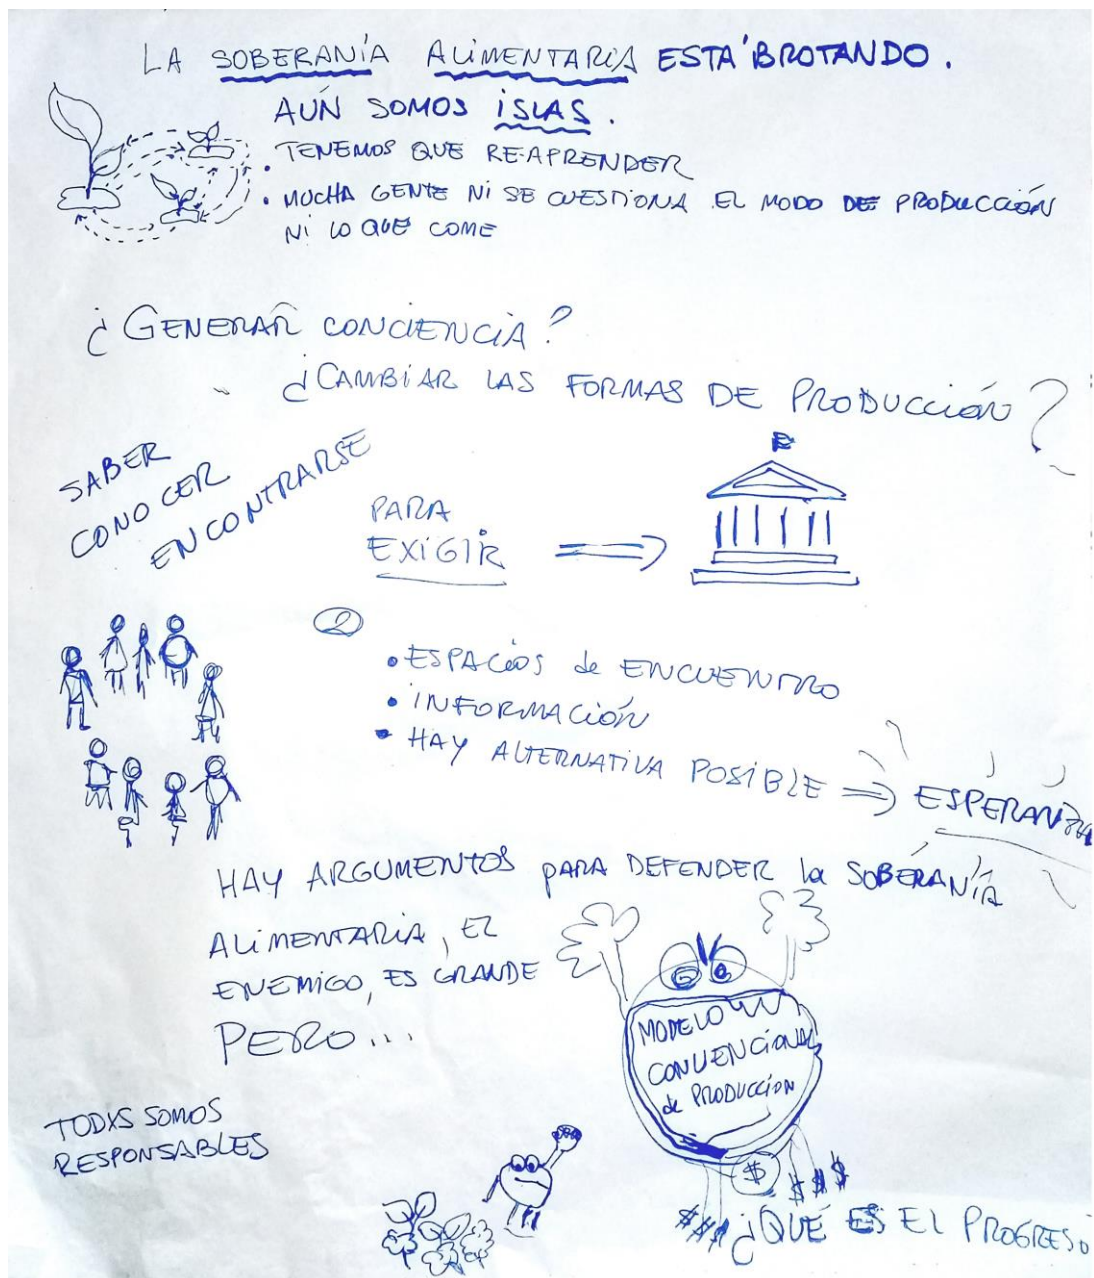 LA SOBERANÍA ALIMENTARIA ESTÁ BROTANDO.
AÚN SOMOS ISLAS.
• TENEMOS QUE RE-APRENDER
• MUCHA GENTE NI SE CUESTIONA EL MODO DE PRODUCCIÓN
NI LO QUE COME
¿GENERAR CONCIENCIA?
¿CAMBIAR LAS FORMAS DE PRODUCCIÓN?
SABER
CONOCER
ENCONTRARSE
PARA
EXIGIR
2
• ESPACIOS de ENCUENTRO
• INFORMACIÓN
• HAY ALTERNATIVA POSIBLE ⇒ ESPERANZA
HAY ARGUMENTOS PARA DEFENDER la SOBERANÍA
ALIMENTARIA, EL
ENEMIGO, ES GRANDE
PERO...
MODELO
CONVENCIONAL
de PRODUCCIÓN
TODXS SOMOS
RESPONSABLES
$
$$$
$$$
¿QUÉ ES EL PROGRESO